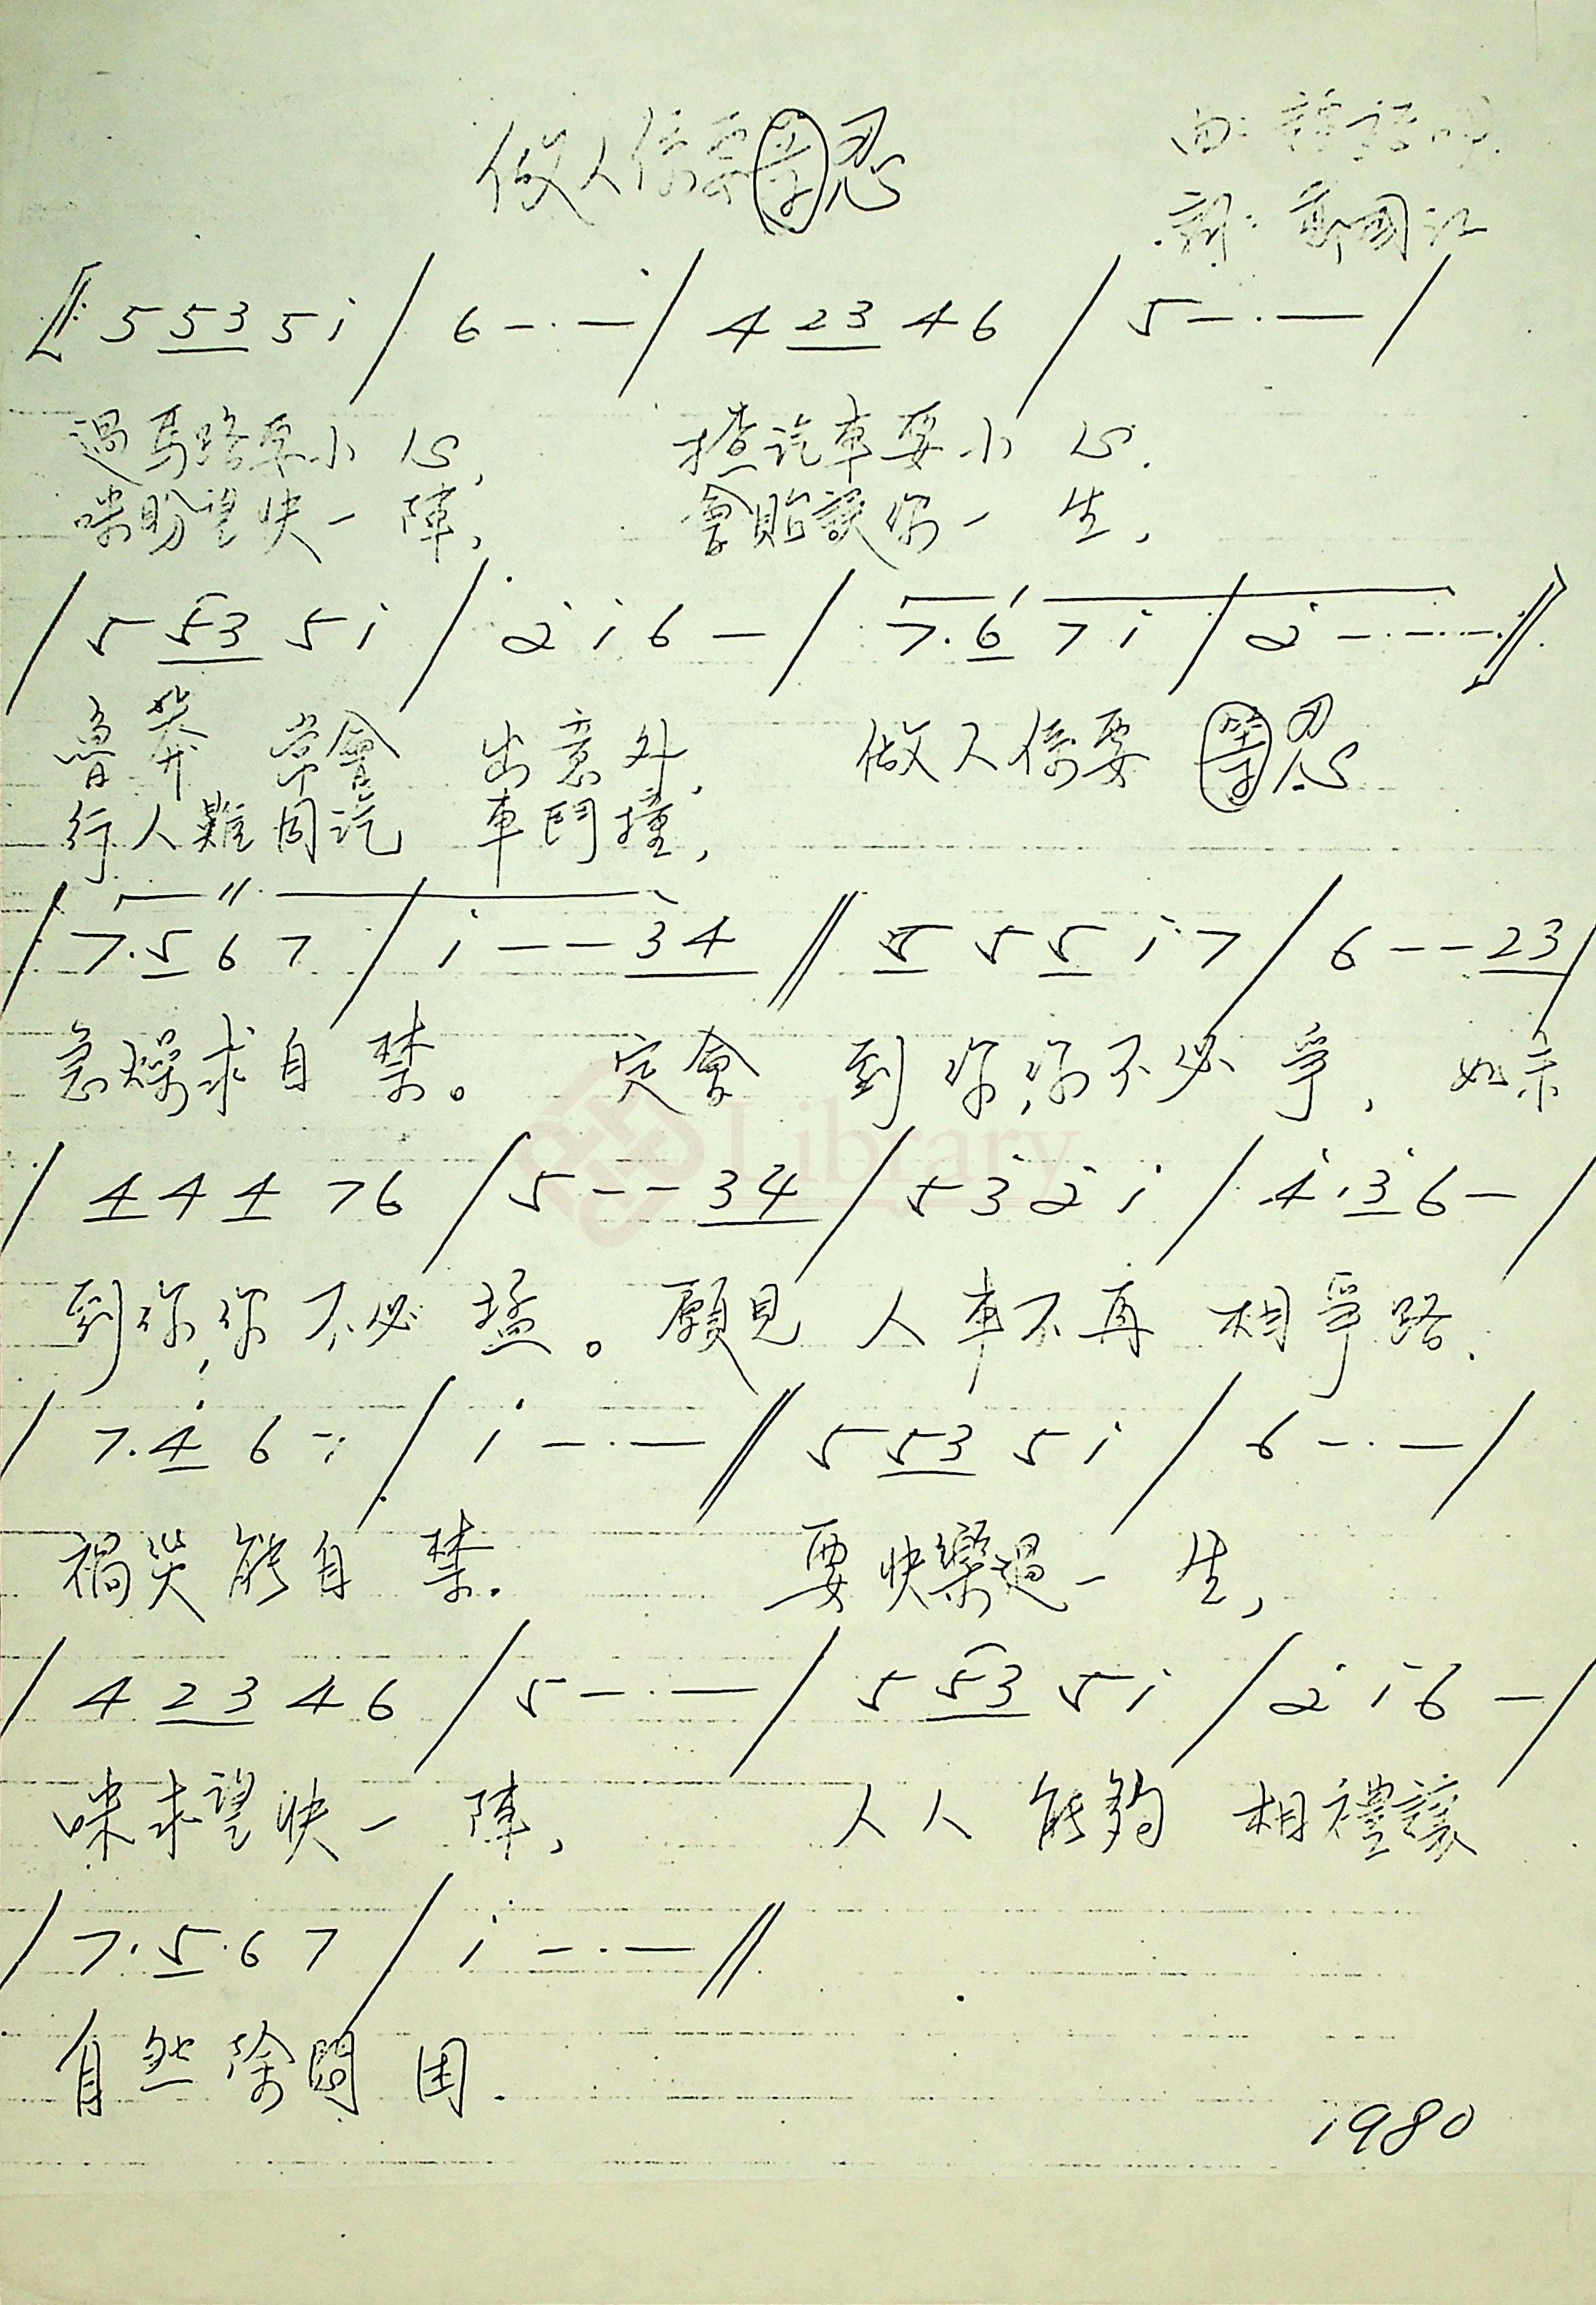 做人係要學忍
曲:
詞:鄭國江
5 53 5 i / 6 - · - / 4 23 4 6 / 5 - · - /
過馬路要小心, 揸汽車要小心.
咪盼望快一陣, 會貽誤你一生,
/ 5 53 5 i / 2̇ i 6 - / 7. 6 7 i / 2̇ - · - · - ·
魯莽 常會 出意外, 做人係要 學忍
行人難同汽 車鬥撞,
/ 7. 5 6 7 / i - - 34 // 5 5 5 i 7 / 6 - - 23 /
急燥求自禁。 定會 到你,你不必爭, 如未
/ 4 4 4 7 6 / 5 - - 34 / 5 3̇ 2̇ i / 4̇ . 3̇ 6 - /
到你,你不必猛。願見 人車不再 相爭路.
/ 7. 4̇ 6 7 / i - · - // 5 53 5 i / 6 - · - /
禍災能自禁. 要快樂過一生,
/ 4 23 4 6 / 5 - · - / 5 53 5 i / 2̇ i 6 - /
咪求望快一陣, 人人能夠 相禮讓
/ 7. 5 6 7 / i - · - //
自然除悶困.
1980
Library